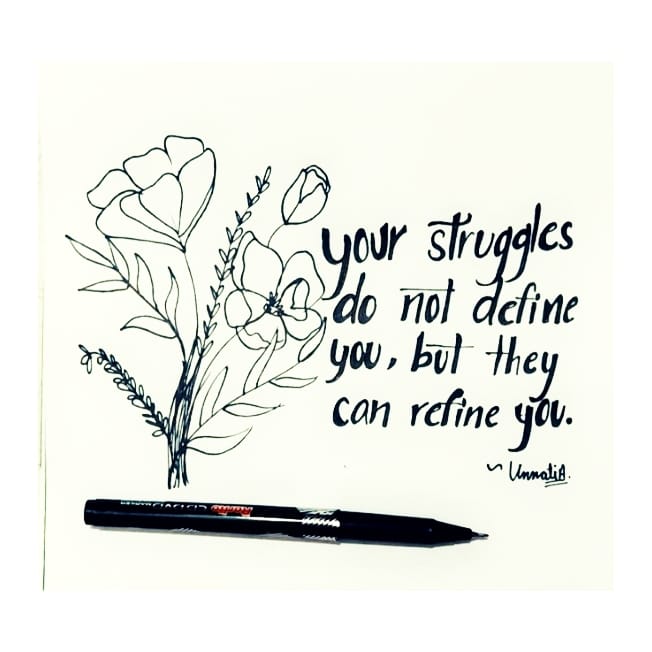 your struggles
do not define
you, but they
can refine you.
~ UnnatiA.